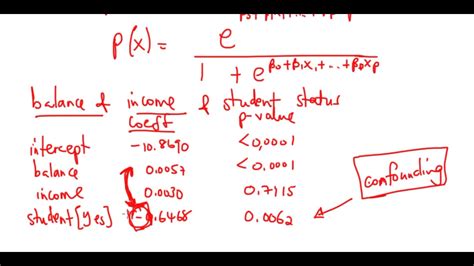 p(x) = e
1 + e^β0+β1x1+...+βpxp
balance & income & student status
coeft p-value
intercept -10.8690 <0.0001
balance 0.0057 <0.0001
income 0.0030 0.7115
student[yes] -0.6468 0.0062
confounding